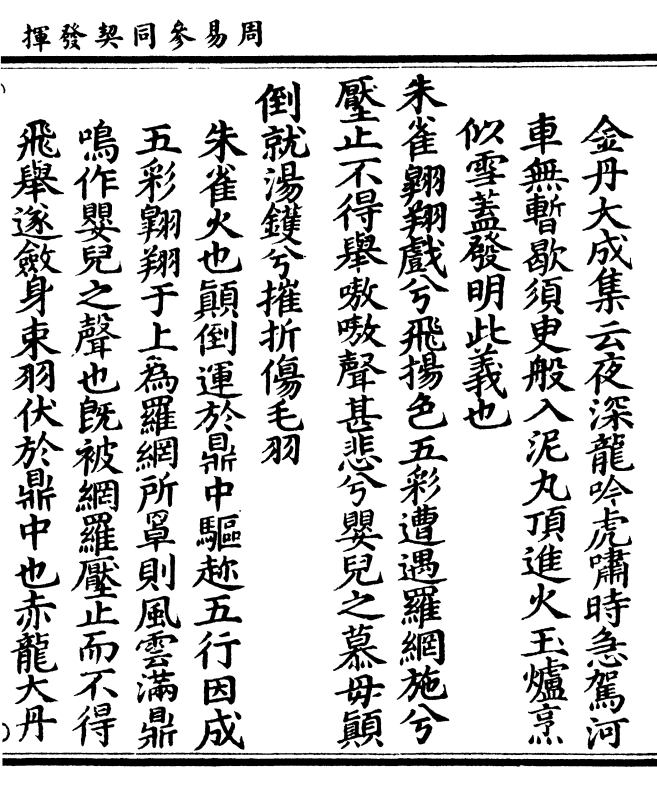 周易參同契發揮
金丹大成集云夜深龍吟虎嘯時急駕河
車無暫歇須臾般入泥丸頂進火玉爐烹
似雪蓋發明此義也
朱雀翺翔戲兮飛揚色五彩遭遇羅網施兮
壓止不得舉嗷嗷聲甚悲兮嬰兒之慕母顚
倒就湯鑊兮摧折傷毛羽
朱雀火也顚倒運於鼎中驅趂五行因成
五彩翺翔于上爲羅網所罩則風雲滿鼎
鳴作嬰兒之聲也旣被網羅壓止而不得
飛舉遂斂身束羽伏於鼎中也赤龍大丹